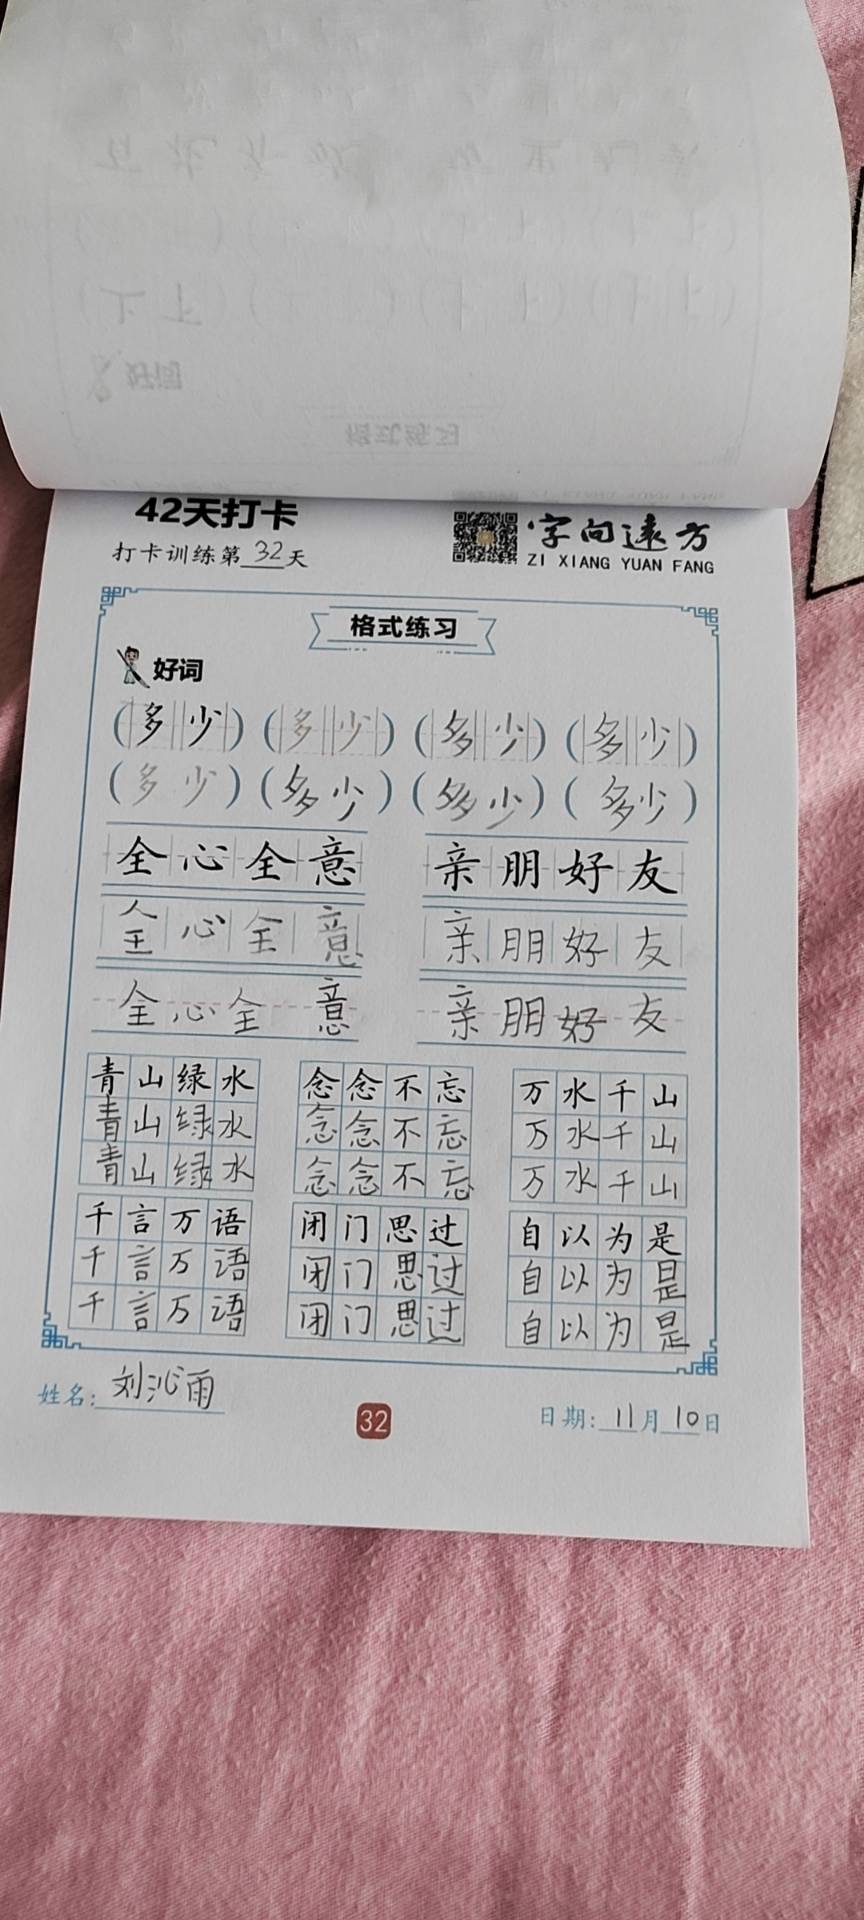 42天打卡
字向遠方
打卡训练第32天
ZI XIANG YUAN FANG
格式练习
好词
(多少) (多少) (多少) (多少)
(多少) (多少) (多少) (多少)
全心全意 亲朋好友
全心全意 亲朋好友
全心全意 亲朋好友
青山绿水 念念不忘 万水千山
青山绿水 念念不忘 万水千山
青山绿水 念念不忘 万水千山
千言万语 闭门思过 自以为是
千言万语 闭门思过 自以为是
千言万语 闭门思过 自以为是
姓名:刘沁雨
32
日期:11月10日